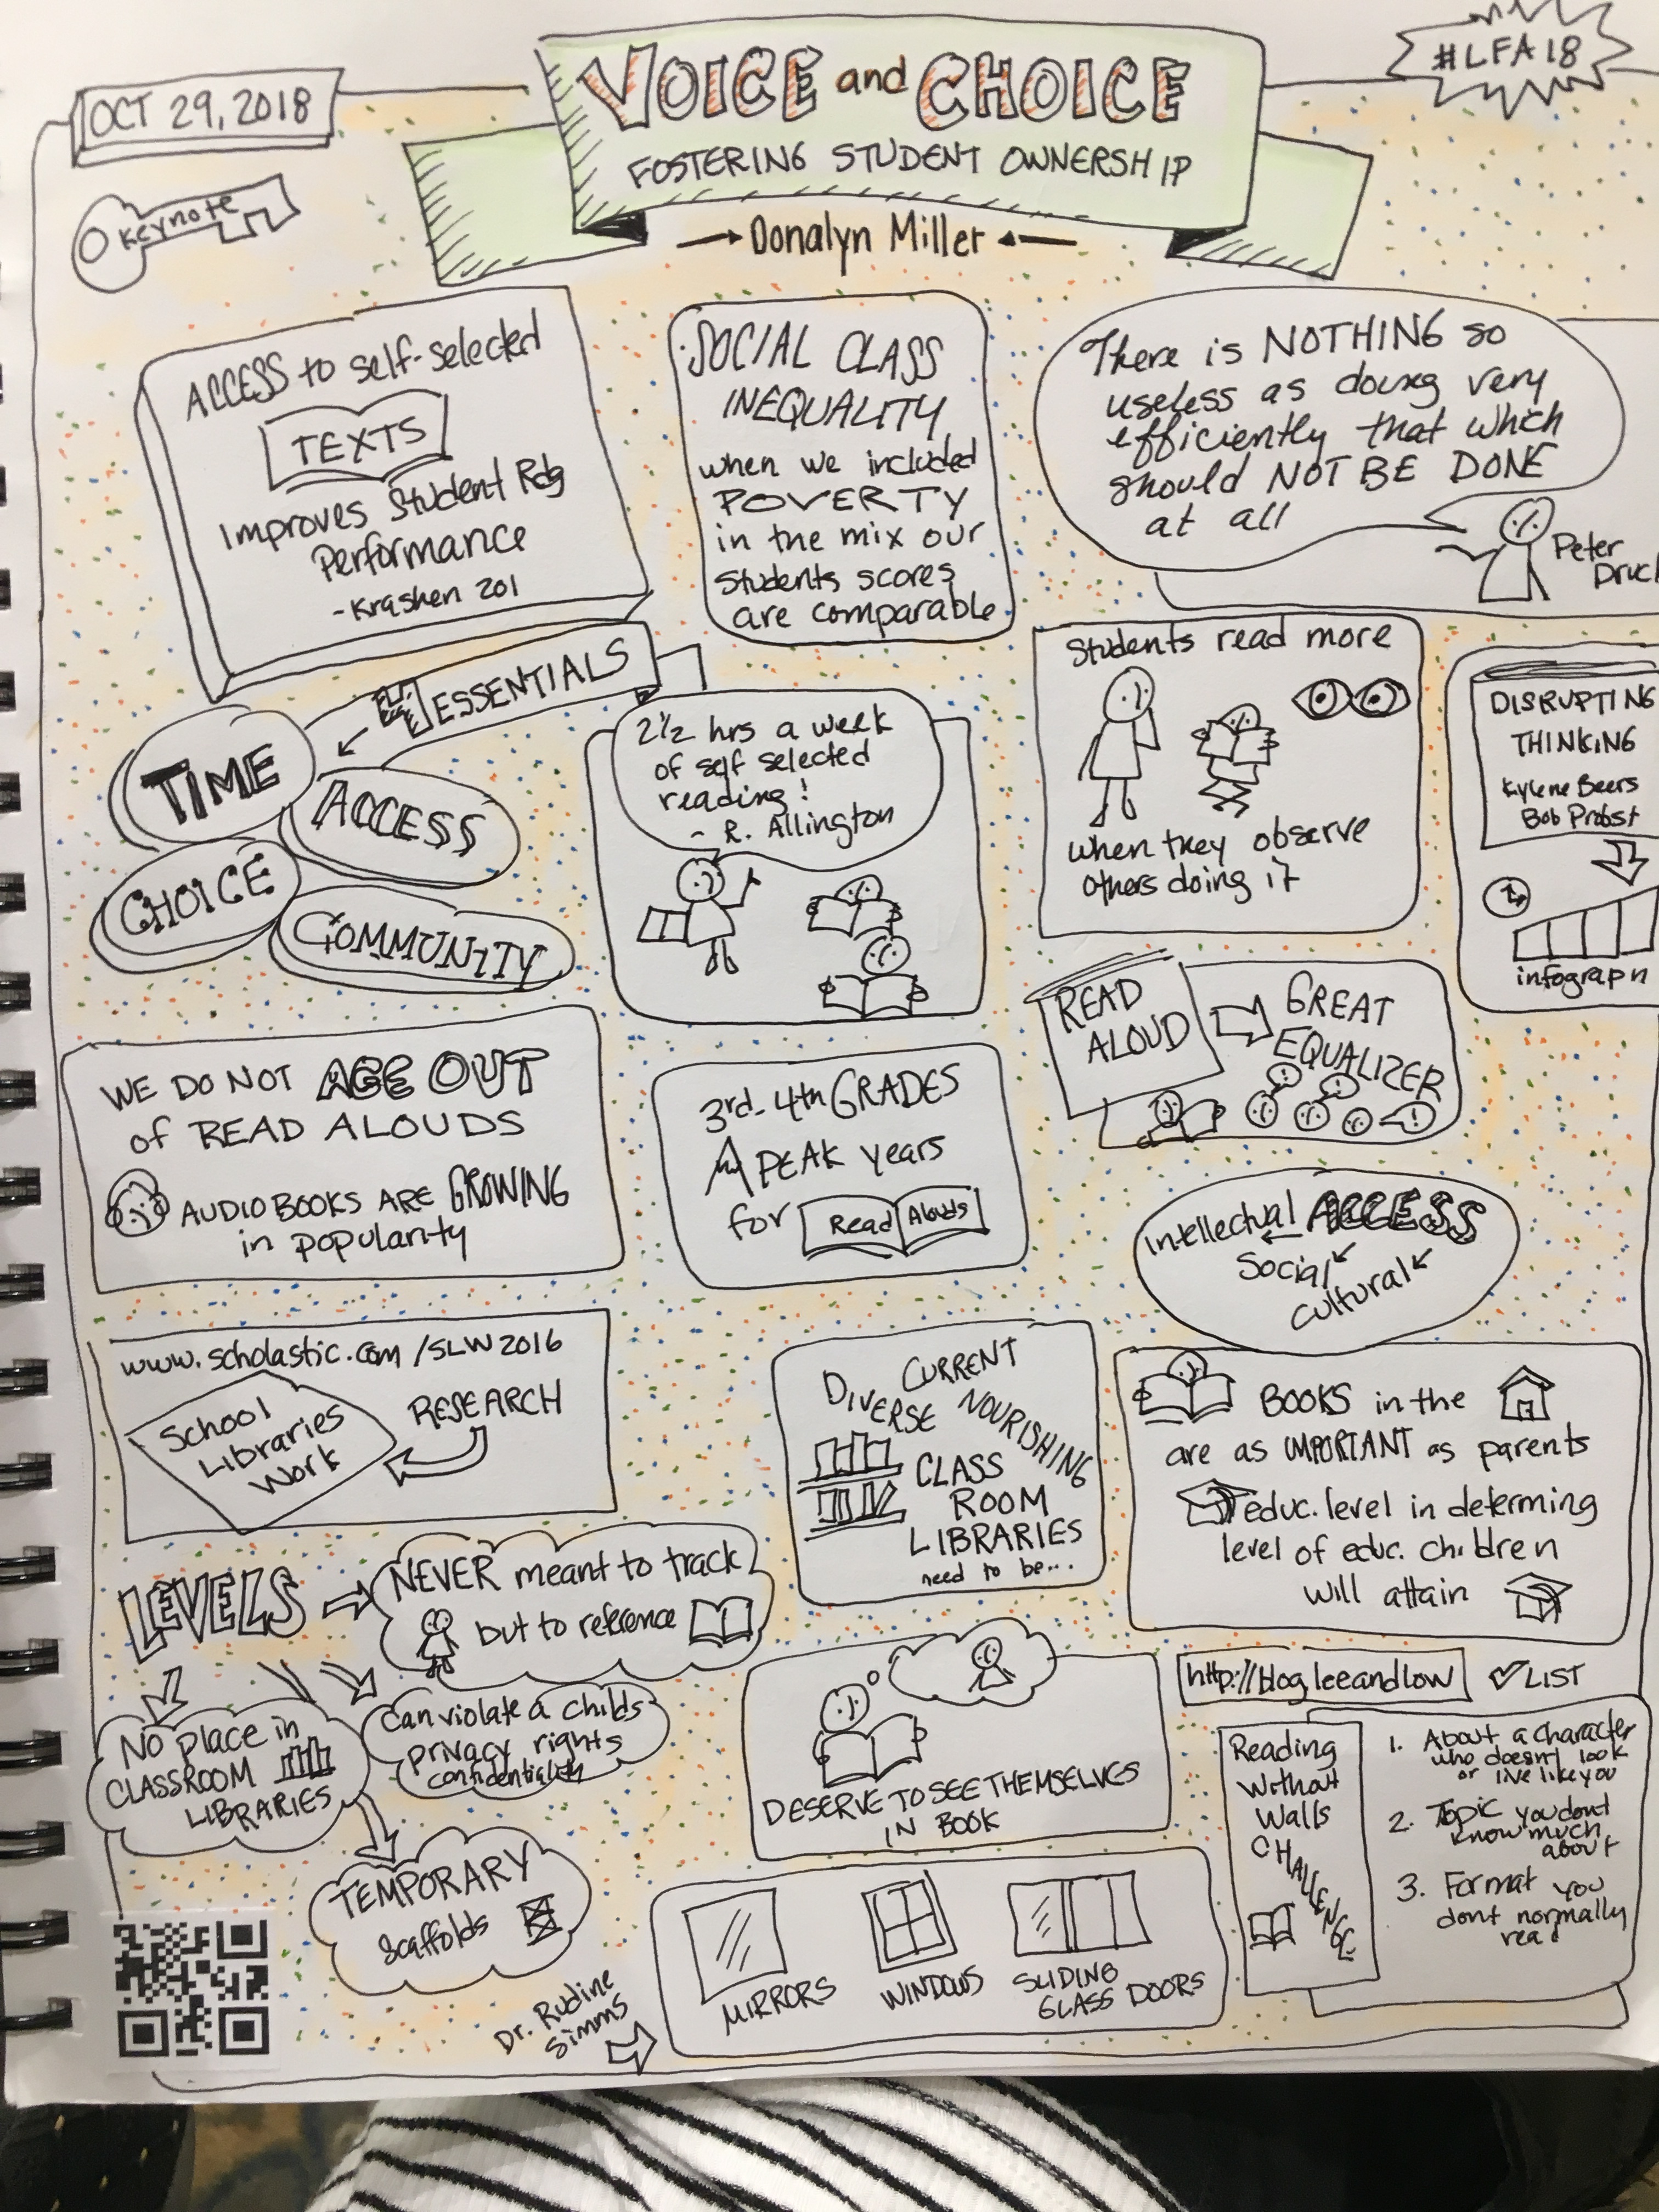 OCT 29, 2018
VOICE and CHOICE
#LFA18
FOSTERING STUDENT OWNERSHIP
keynote
Donalyn Miller
ACCESS to self-selected
TEXTS
Improves Student Rdg
Performance
-Krashen 201
SOCIAL CLASS
INEQUALITY
when we included
POVERTY
in the mix our
students scores
are comparable
There is NOTHING so
useless as doing very
efficiently that which
should NOT BE DONE
at all
Peter
Druc
ESSENTIALS
TIME
ACCESS
CHOICE
COMMUNITY
2½ hrs a week
of self selected
reading!
- R. Allington
Students read more
when they observe
others doing it
DISRUPTING
THINKING
Kylene Beers
Bob Probst
infograph
READ
ALOUD
GREAT
EQUALIZER
WE DO NOT AGE OUT
of READ ALOUDS
AUDIOBOOKS ARE GROWING
in popularity
3rd-4th GRADES
PEAK years
for Read Alouds
Intellectual ACCESS
Social
Cultural
www.scholastic.com/SLW2016
School
Libraries
Work
RESEARCH
CURRENT
DIVERSE
NOURISHING
CLASS
ROOM
LIBRARIES
need to be...
BOOKS in the
are as IMPORTANT as parents
educ. level in determing
level of educ. children
will attain
LEVELS
NEVER meant to track
but to reference
NO place in
CLASSROOM
LIBRARIES
Can violate a childs
privacy rights
confidentiality
TEMPORARY
scaffolds
DESERVE TO SEE THEMSELVES
IN BOOK
http://blog.leeandlow
LIST
Reading
Without
Walls
CHALLENGE
1. About a character
who doesn't look
or live like you
2. Topic you dont
know much
about
3. Format you
dont normally
read
Dr. Rudine
Simms
MIRRORS
WINDOWS
SLIDING
GLASS DOORS